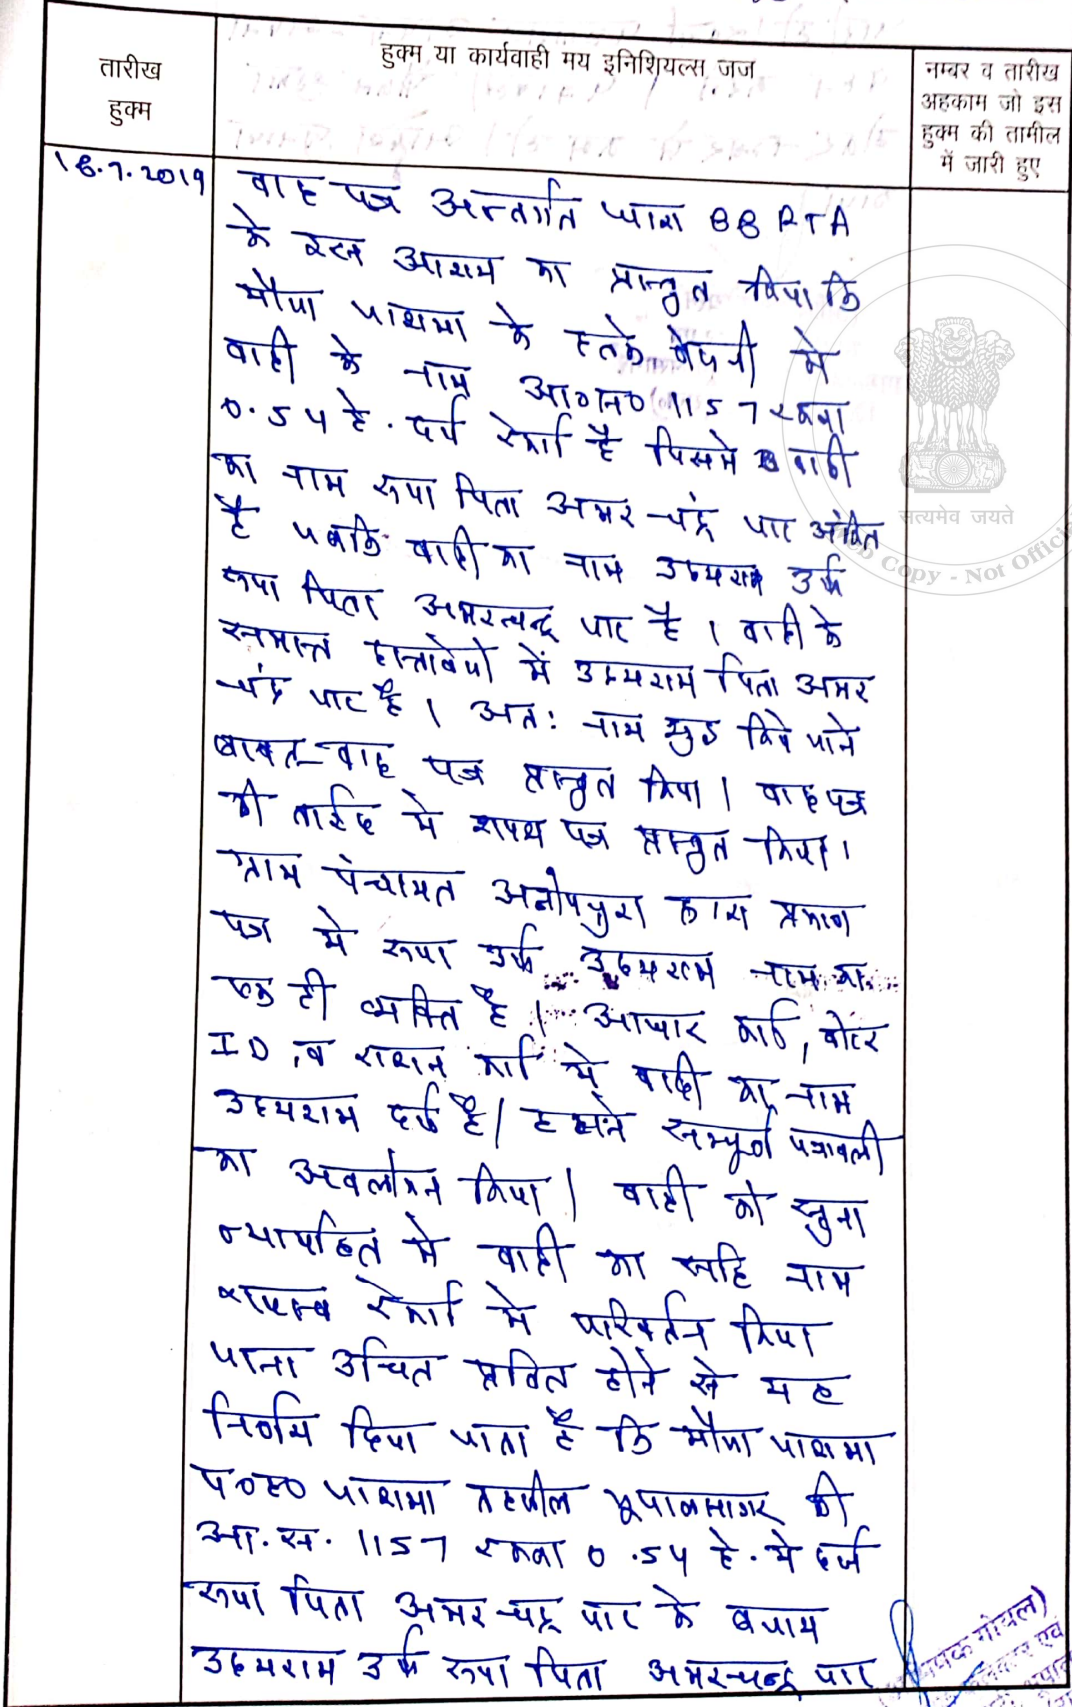 हुक्म या कार्यवाही मय इनिशियल्स जज
तारीख
हुक्म
नम्बर व तारीख
अहकाम जो इस
हुक्म की तामील
में जारी हुए
18.7.2019
वाद पत्र अन्तर्गत धारा 88 RTA
के इस आशय का प्रस्तुत किया कि
मौजा पारामा के हलके में
वादी के नाम आ०न० 1157 रकबा
0.54 है. दर्ज रेकार्ड है जिसमे वादी
का नाम रूपा पिता अमरचंद्र जाट अंकित
है जबकि वादी का नाम उदयराम उर्फ
रूपा पिता अमरचन्द्र जाट है । वादी के
समस्त दस्तावेजो में उदयराम पिता अमर
चंद्र जाट है । अतः नाम शुद्ध किये जाने
बाबत वाद पत्र प्रस्तुत किया । वाद पत्र
की ताईद मे शपथ पत्र प्रस्तुत किया।
ग्राम पंचायत अनोपपुरा द्वारा प्रमाण
पत्र मे रूपा उर्फ उदयराम नाम का
एक ही व्यक्ति है । आधार कार्ड, वोटर
ID, व राशन कार्ड मे वादी का नाम
उदयराम दर्ज है। हमने सम्पूर्ण पत्रावली
का अवलोकन किया । वादी को सुना
न्यायहित मे वादी का सहि नाम
राजस्व रेकार्ड मे परिवर्तन किया
जाना उचित प्रतित होने से यह
निर्णय दिया जाता है कि मौजा पारामा
प०ह० पारामा तहसील भूपालसागर की
आ.स. 1157 रकबा 0.54 है. मे दर्ज
रूपा पिता अमरचन्द्र जाट के बजाय
उदयराम उर्फ रूपा पिता अमरचन्द्र जाट
सत्यमेव जयते
Copy - Not Offici
गोयल)
एवं